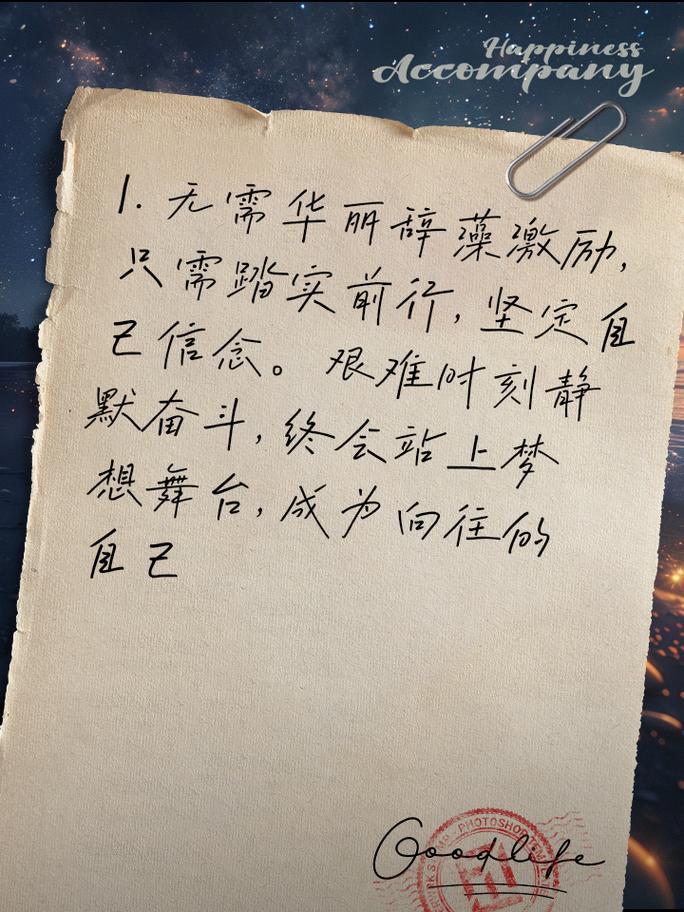 Happiness
Accompany
1. 无需华丽辞藻激励,
只需踏实前行, 坚定自
己信念。艰难时刻静
默奋斗, 终会站上梦
想舞台, 成为向往的
自己
PHOTOSHOP
Goodlife